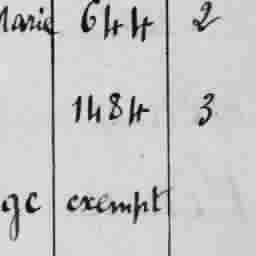 Marie 644 2
1484 3
gc exempt